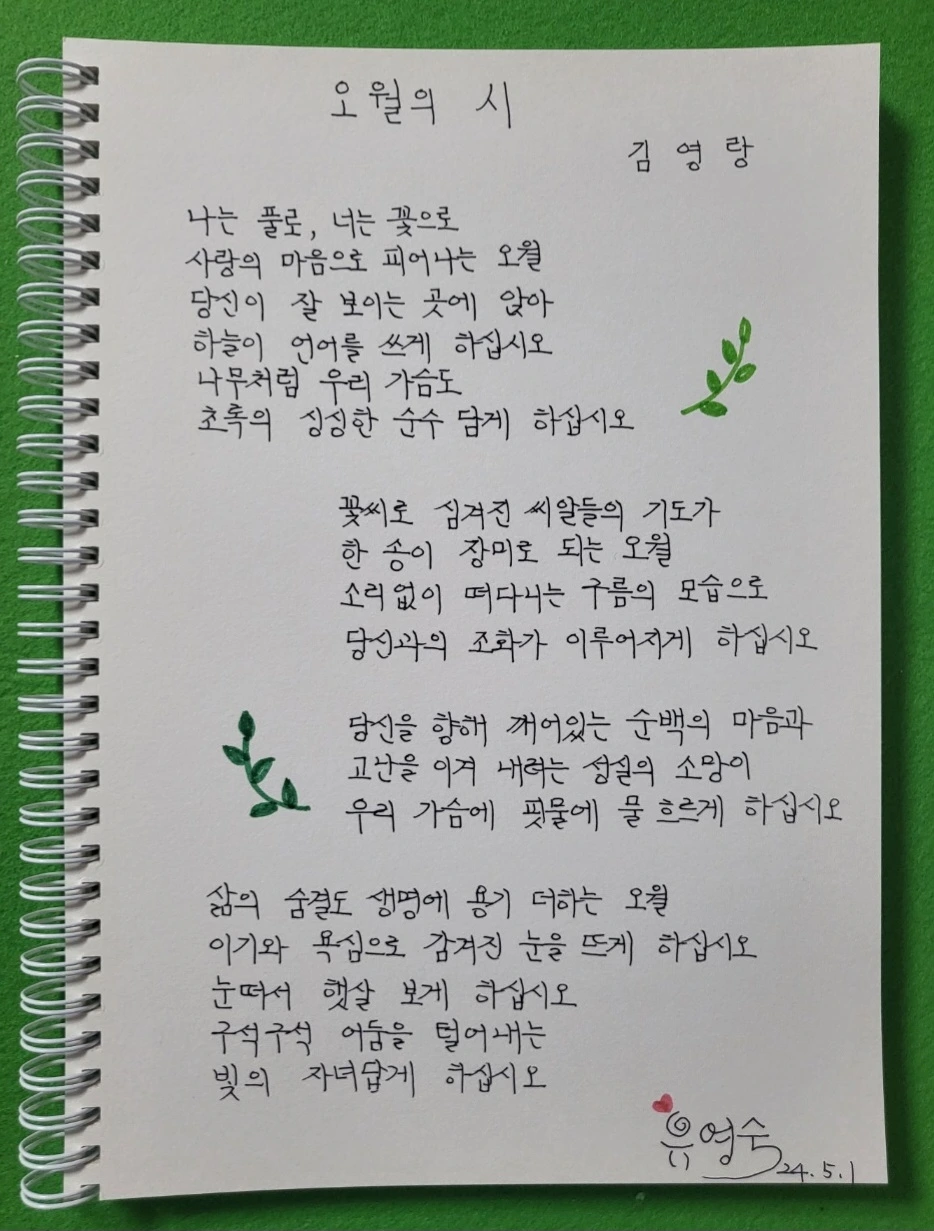 오월의 시
김영랑
나는 풀로, 너는 꽃으로
사랑의 마음으로 피어나는 오월
당신이 잘 보이는 곳에 앉아
하늘이 언어를 쓰게 하십시오
나무처럼 우리 가슴도
초록의 싱싱한 순수 담게 하십시오
꽃씨로 심겨진 씨알들의 기도가
한 송이 장미로 되는 오월
소리없이 떠다니는 구름의 모습으로
당신과의 조화가 이루어지게 하십시오
당신을 향해 깨어있는 순백의 마음과
고난을 이겨 내려는 성실의 소망이
우리 가슴에 핏물에 물 흐르게 하십시오
삶의 숨결도 생명에 용기 더하는 오월
이기와 욕심으로 감겨진 눈을 뜨게 하십시오
눈떠서 햇살 보게 하십시오
구석구석 어둠을 털어내는
빛의 자녀답게 하십시오
유영숙
24.5.1